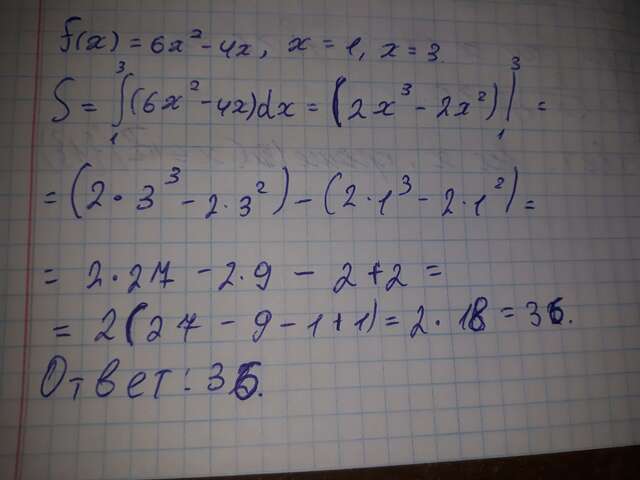 f(x) = 6x² - 4x, x = 1, x = 3.
S = ∫₁³ (6x² - 4x)dx = (2x³ - 2x²)|₁³ =
= (2 · 3³ - 2 · 3²) - (2 · 1³ - 2 · 1²) =
= 2 · 27 - 2 · 9 - 2 + 2 =
= 2(27 - 9 - 1 + 1) = 2 · 18 = 36.
Ответ: 36.